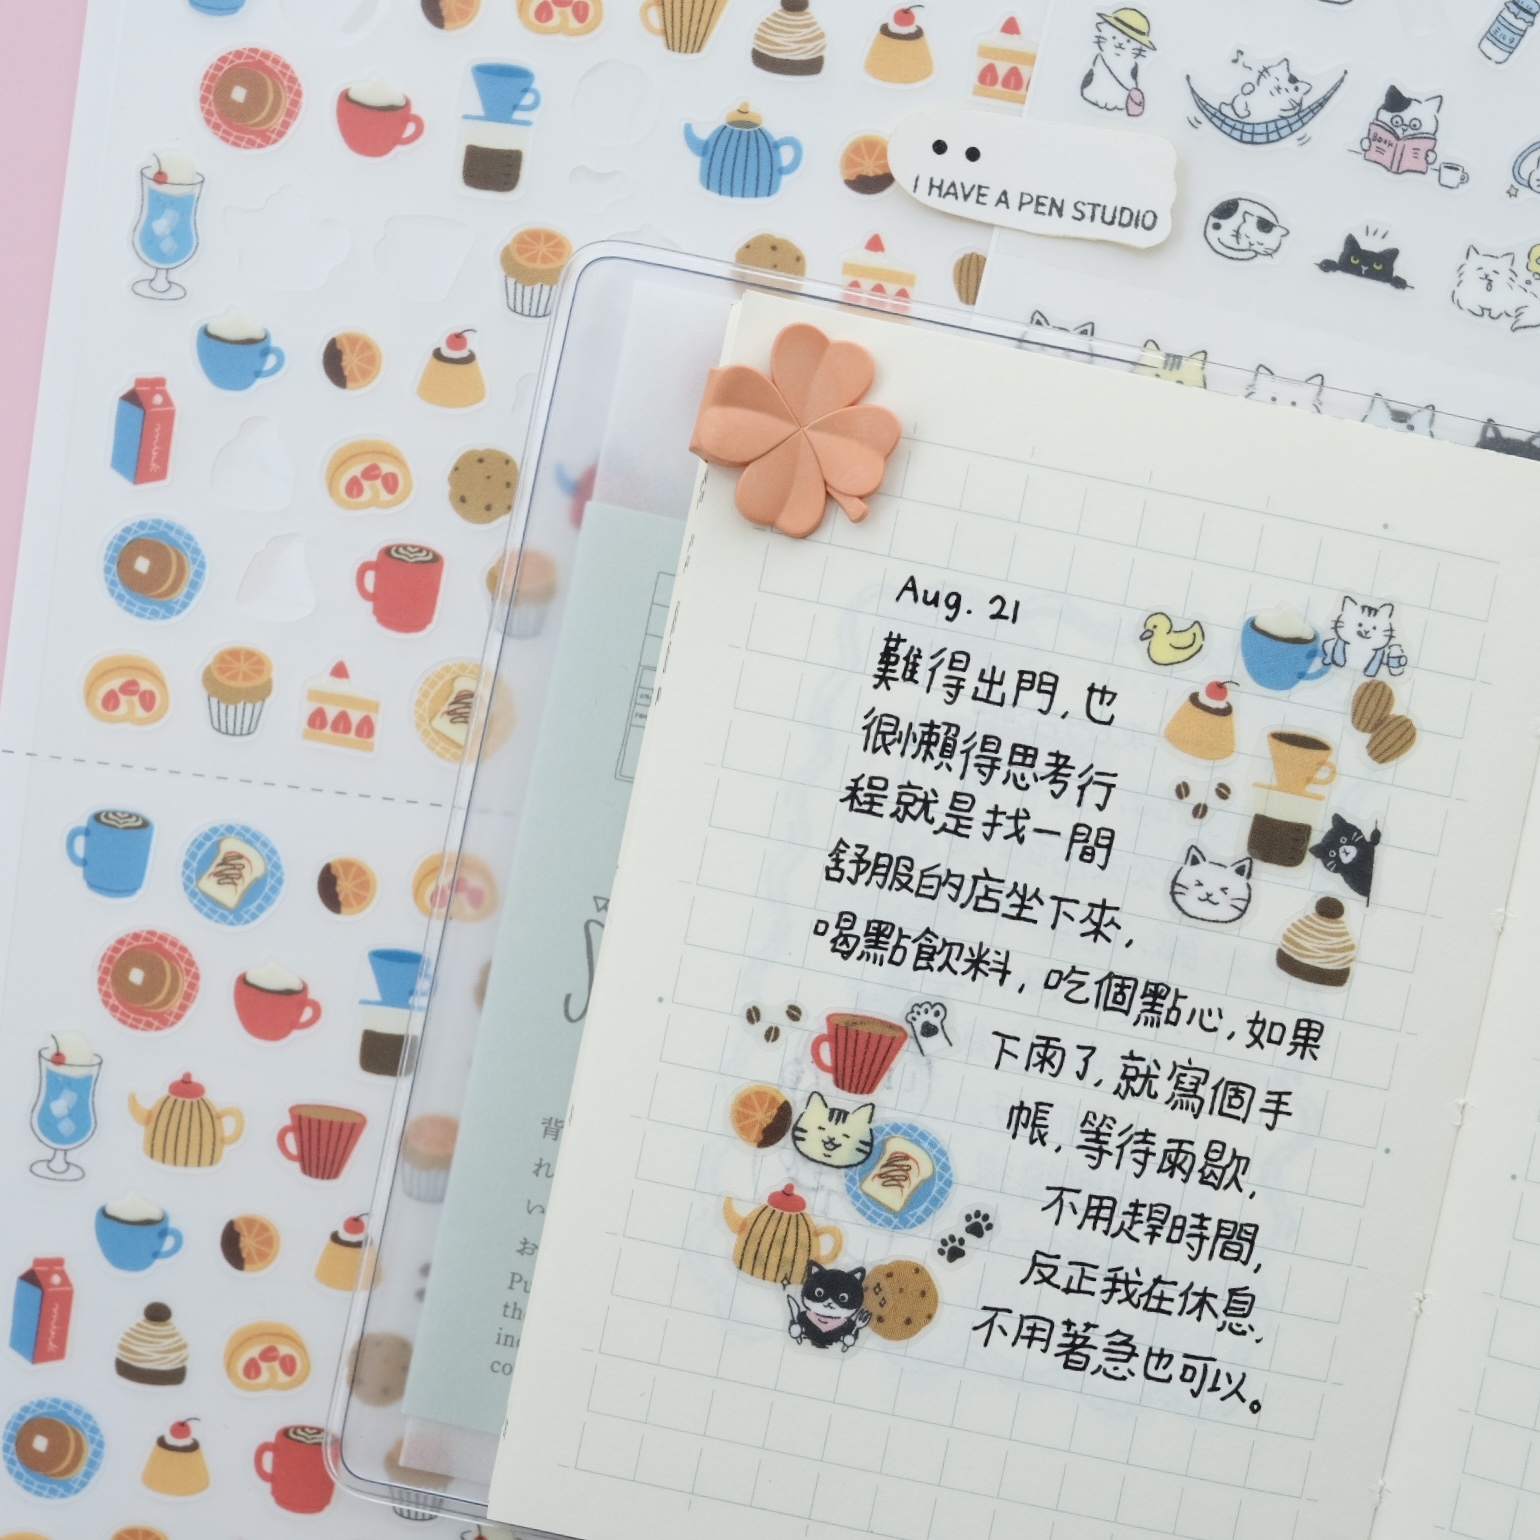 I HAVE A PEN STUDIO
BOOK
milk
milk
Aug. 21
難得出門,也
很懶得思考行
程就是找一間
舒服的店坐下來,
喝點飲料,吃個點心,如果
下雨了,就寫個手
帳,等待雨歇,
不用趕時間,
反正我在休息,
不用著急也可以。
背
れ
い
お
Pu
th
in
co